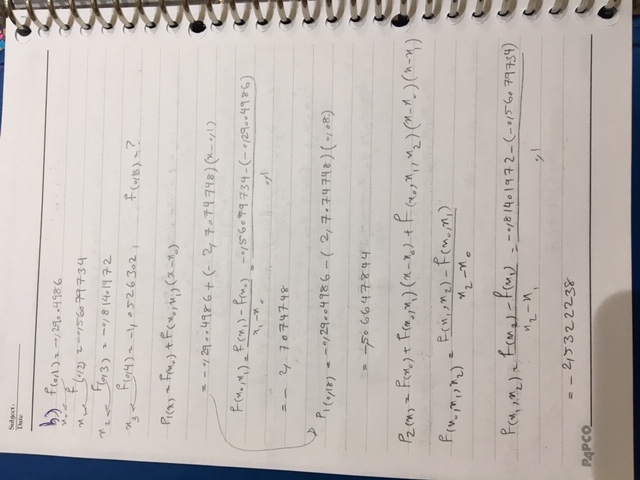 Subject.
Date
b.) f(0,1) = -0,29004986
x₀ ← f(0,2) = -0,56079734
x₁ ←
x₂ ← f(0,3) = -0,81401972
x₃ ← f(0,4) = -1,0526302, f(0,18) = ?
P₁(x) = f(x₀) + f(x₀,x₁)(x-x₀)
= -0,29004986 + (-2,7074748)(x-0,1)
f(x₀,x₁) = f(x₁) - f(x₀) / x₁-x₀ = -0,56079734 - (-0,29004986) / 0,1
= -2,7074748
P₁(0,18) = -0,29004986 - (2,7074748)(0,08)
= -,506647844
P₂(x) = f(x₀) + f(x₀,x₁)(x-x₀) + f(x₀,x₁,x₂)(x-x₀)(x-x₁)
f(x₀,x₁,x₂) = f(x₁,x₂) - f(x₀,x₁) / x₂-x₀
f(x₁,x₂) = f(x₂) - f(x₁) / x₂-x₁ = -0,81401972 - (-0,56079734) / 0,1
= -2,5322238
PAPCO